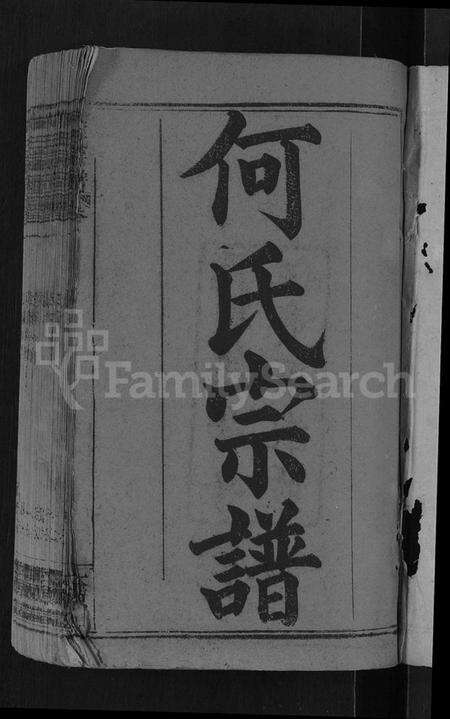 何氏宗譜
FamilySearch